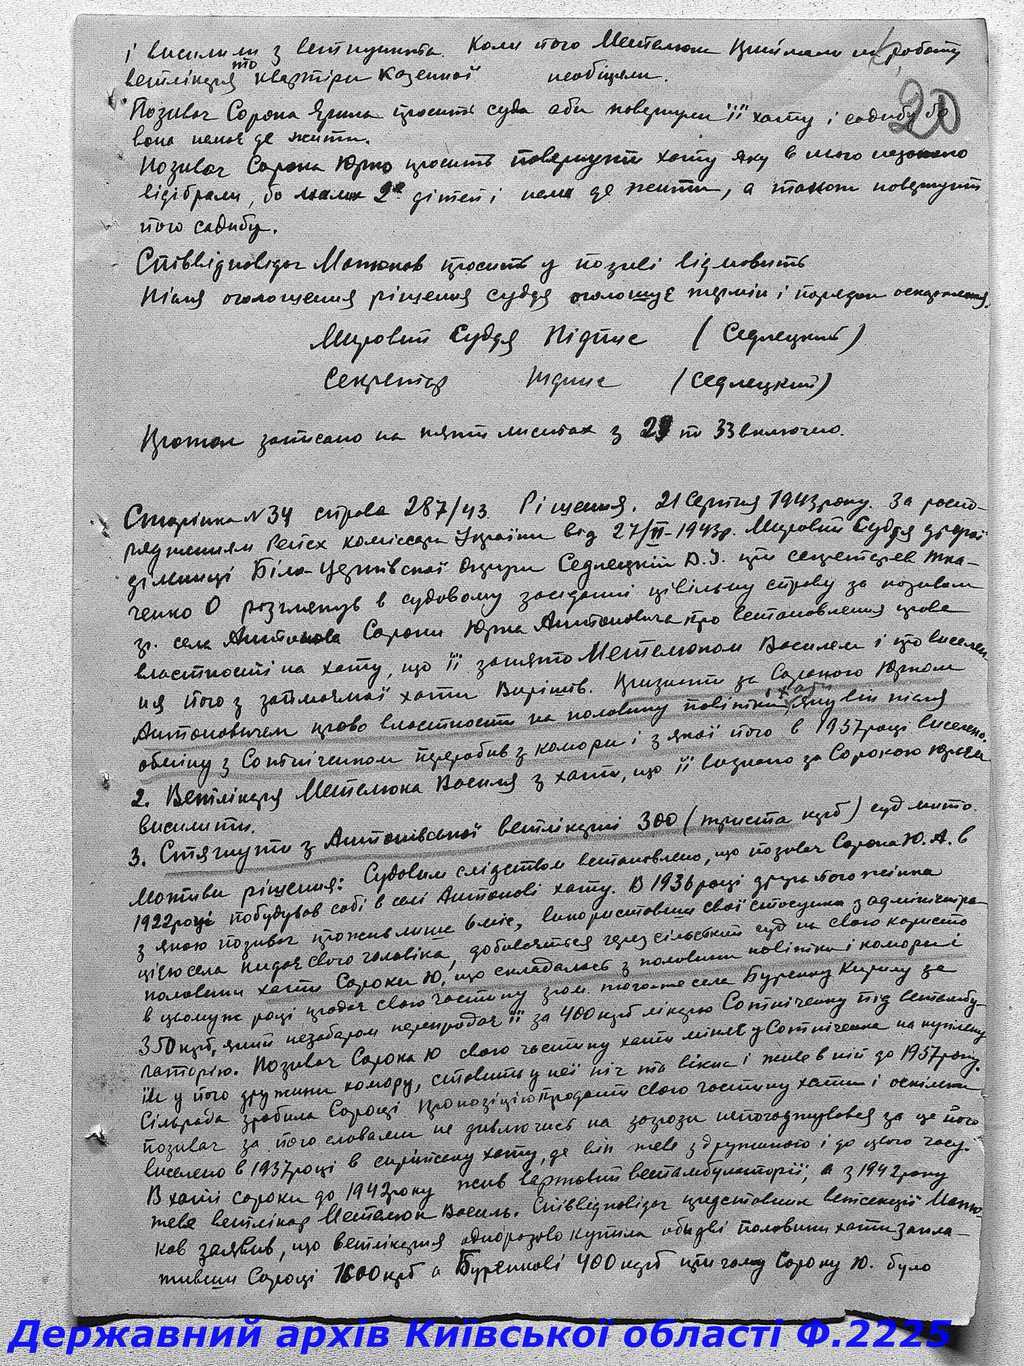 і висилили з ветпункта. Коли його Метелюк приймали на роботу
ветлікаря то квартири казенної необіцяли.
20
Позивач Сорока Ярина просить суда аби повернули її хату і садибу бо
вона немає де жити.
Позивач Сорока Юрко просить повернути хату яку в нього незаконно
відібрали, бо малих 2є дітей і нема де жити, а також повернути
його садибу.
Співвідповідач Матюков просить у позиві відмовить
Після оголошення рішення суддя оголошує термін і порядок оскарження.
Мировий Суддя Підпис (Седлецкий)
Секретар Підпис (Седлецкий)
Протокол записано на пяти листах з 29 по 33 включно.
Сторінка № 34 справа 287/43. Рішення. 21 Серпня 1943 року. За розпо-
рядженням Рейсх коміссара України від 27/II-1943р. Мировий Суддя другої
дільниці Біла-Церківскої Округи Седлецкій Д.І. при секретареві Тка-
ченко О розглянув в судовому засіданні цівільну справу за позивом
гр. села Антонова Сороки Юрка Антоновича про встановлення права
властности на хату, що її занято Метелюком Василем і про виселен-
ня його з займаємої хати Вирішив. Признати за Сорокою Юрком
Антоновичем право властности на половину повітки і хати, яку він після
обміну з Сотніченком переробив з комори і з якої його в 1937 році виселено.
2. Ветлікаря Метелюка Василя з хати, що її визнано за Сорокою Юрком
висилити.
3. Стягнути з Антонівської ветлікарні 300 (триста крб) суд мито.
Мотиви рішення: Судовим слідством встановлено, що позивач Сорока Ю. А. в
1922 році побудував собі в селі Антонові хату. В 1936 році друга його жінка
з якою позивач прожив лише 6 міс, використавши свої стосунки з адміністра-
цією села кидає свого чоловіка, добивається через сільський суд на свою користь
половини хати Сороки Ю, що складалась з половини повітки і комори і
в цьому ж році продає свою частину гром. того-же села Буренку Кирилу за
350 крб, який незабаром перепродає її за 400 крб лікарю Сотніченку під ветамбу-
латорію. Позивач Сорока Ю свою частину хати міняє у Сотніченка на куплену
їм у його дружини комору, ставить у неї піч та вікна і живе в ній до 1937 року.
Сільрада зробила Сороці пропозіцію продати свою частину хати і оскільки
позивач за його словами не дивлючись на загрози непогаджувався за це його
виселено в 1937 році в сирітську хату, де він живе з дружиною і до цього часу.
В хаті сороки до 1942 року жив вартовий ветамбулаторії, а з 1942 року
живе ветлікар Метелюк Василь. Співвідповідач представник ветсекції Матю-
ков заявив, що ветлікарня одноразово купила обидві половини хати запла-
тивши Сороці 1600 крб а Буренкові 400 крб при чому Сороку Ю. було
Державний архів Київської області Ф.2225